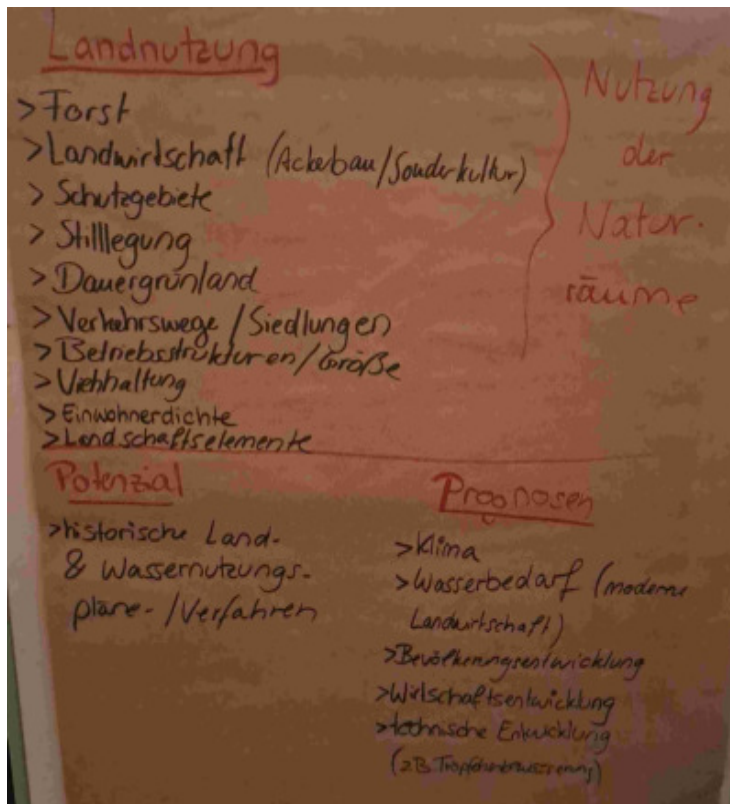 Landnutzung
>Forst
>Landwirtschaft (Ackerbau/Sonderkultur)
> Schutzgebiete
> Stilllegung
> Dauergrünland
> Verkehrswege / Siedlungen
> Betriebsstrukturen / Größe
> Viehhaltung
> Einwohnerdichte
> Landschaftselemente
Nutzung
der
Natur-
räume
Potenzial
>historische Land-
& Wassernutzungs-
pläne-/Verfahren
Prognosen
>Klima
>Wasserbedarf (moderne
Landwirtschaft)
>Bevölkerungsentwicklung
>Wirtschaftsentwicklung
>technische Entwicklung
(zB. Tropfchenbewässerung)